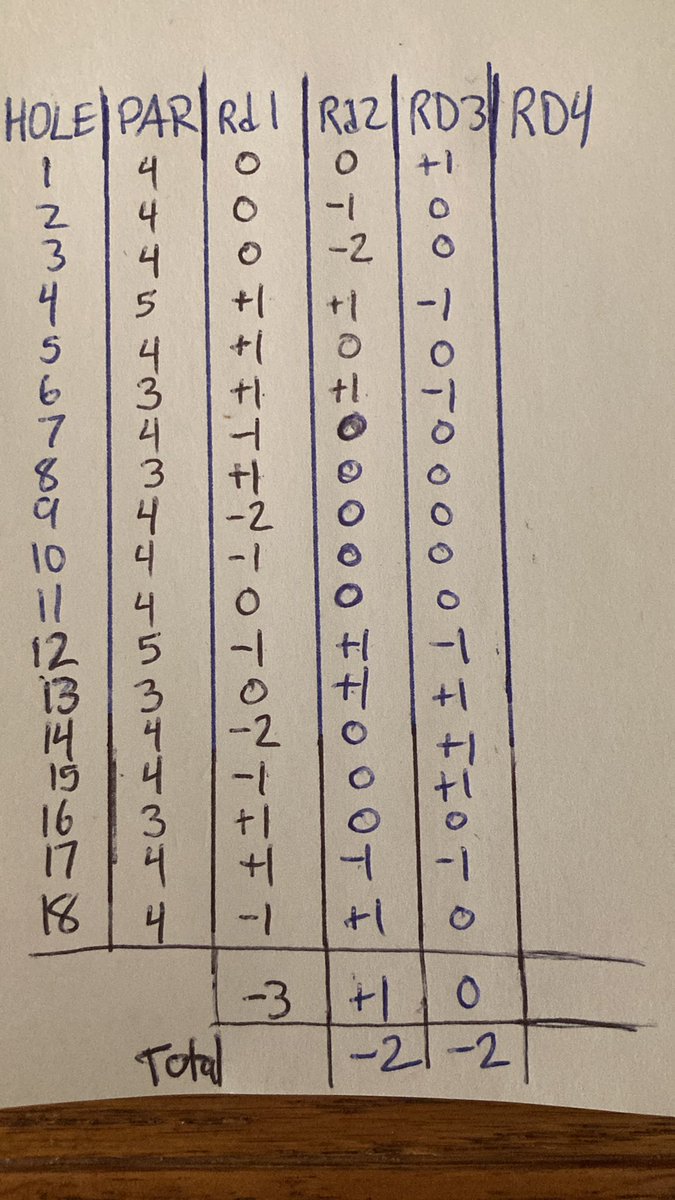 HOLE PAR Rd1 Rd2 RD3 RD4
1 4 0 0 +1
2 4 0 -1 0
3 4 0 -2 0
4 5 +1 +1 -1
5 4 +1 0 0
6 3 +1 +1 -1
7 4 -1 0 0
8 3 +1 0 0
9 4 -2 0 0
10 4 -1 0 0
11 4 0 0 0
12 5 -1 +1 -1
13 3 0 +1 +1
14 4 -2 0 +1
15 4 -1 0 +1
16 3 +1 0 0
17 4 +1 -1 -1
18 4 -1 +1 0
-3 +1 0
Total -2 -2